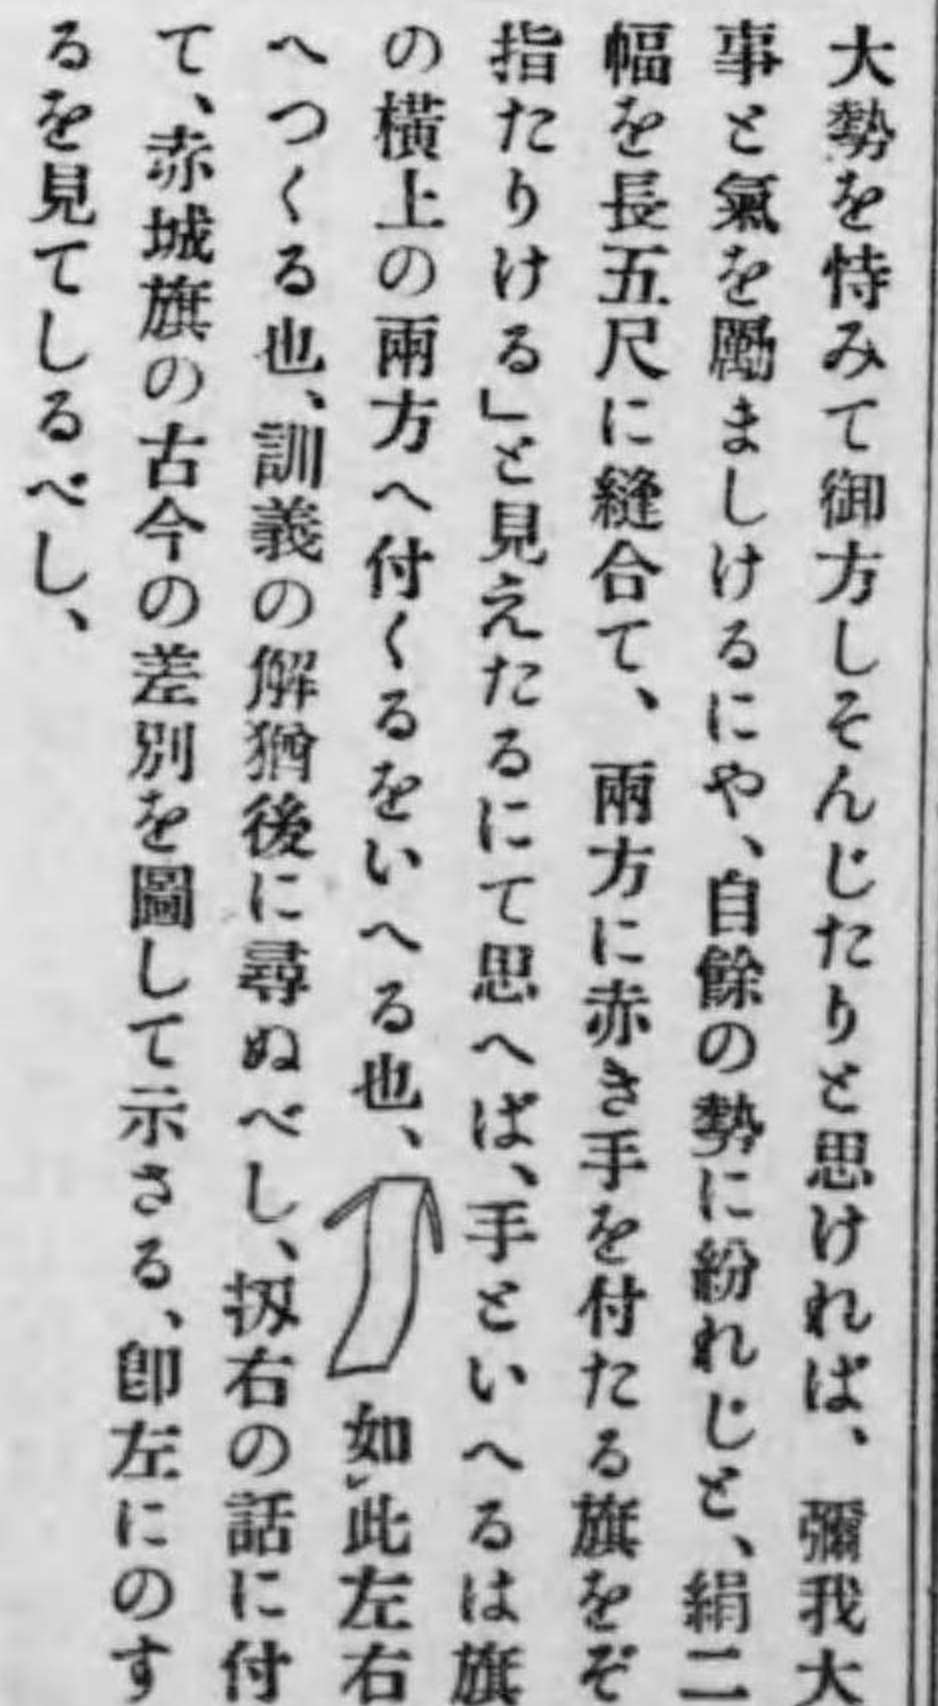 大勢を恃みて御方しそんじたりと思ければ、彌我大
事と氣を勵ましけるにや、自餘の勢に紛れじと、絹二
幅を長五尺に縫合て、兩方に赤き手を付たる旗をぞ
指たりける」と見えたるにて思へば、手といへるは旗
の橫上の兩方へ付くるをいへる也、如㆑此左右
へつくる也、訓義の解猶後に尋ぬべし、扨右の話に付
て、赤城旗の古今の差別を圖して示さる、卽左にのす
るを見てしるべし、